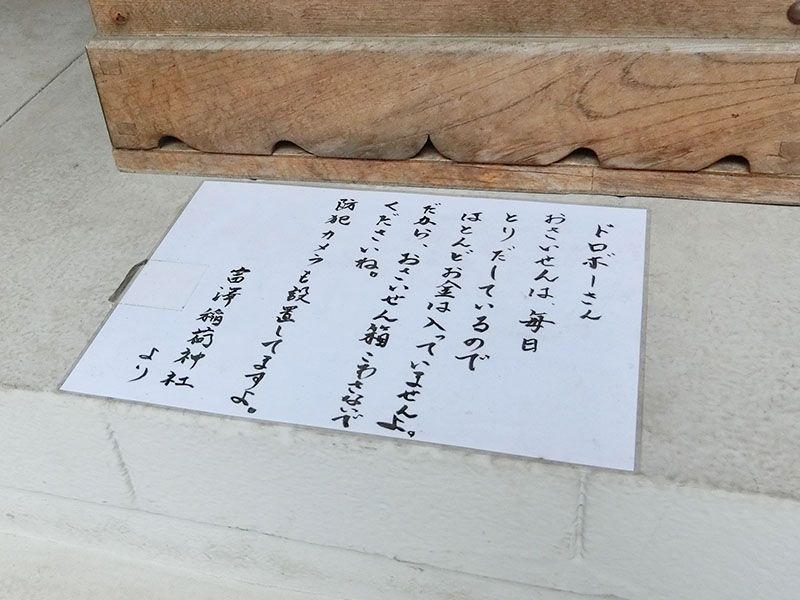 ドロボーさん
おさいせんは、毎日
とりだしているので
ほとんどお金は入っていませんよ。
だから、おさいせん箱こわさないで
くださいね。
防犯カメラも設置してますよ。
富澤稲荷神社
より